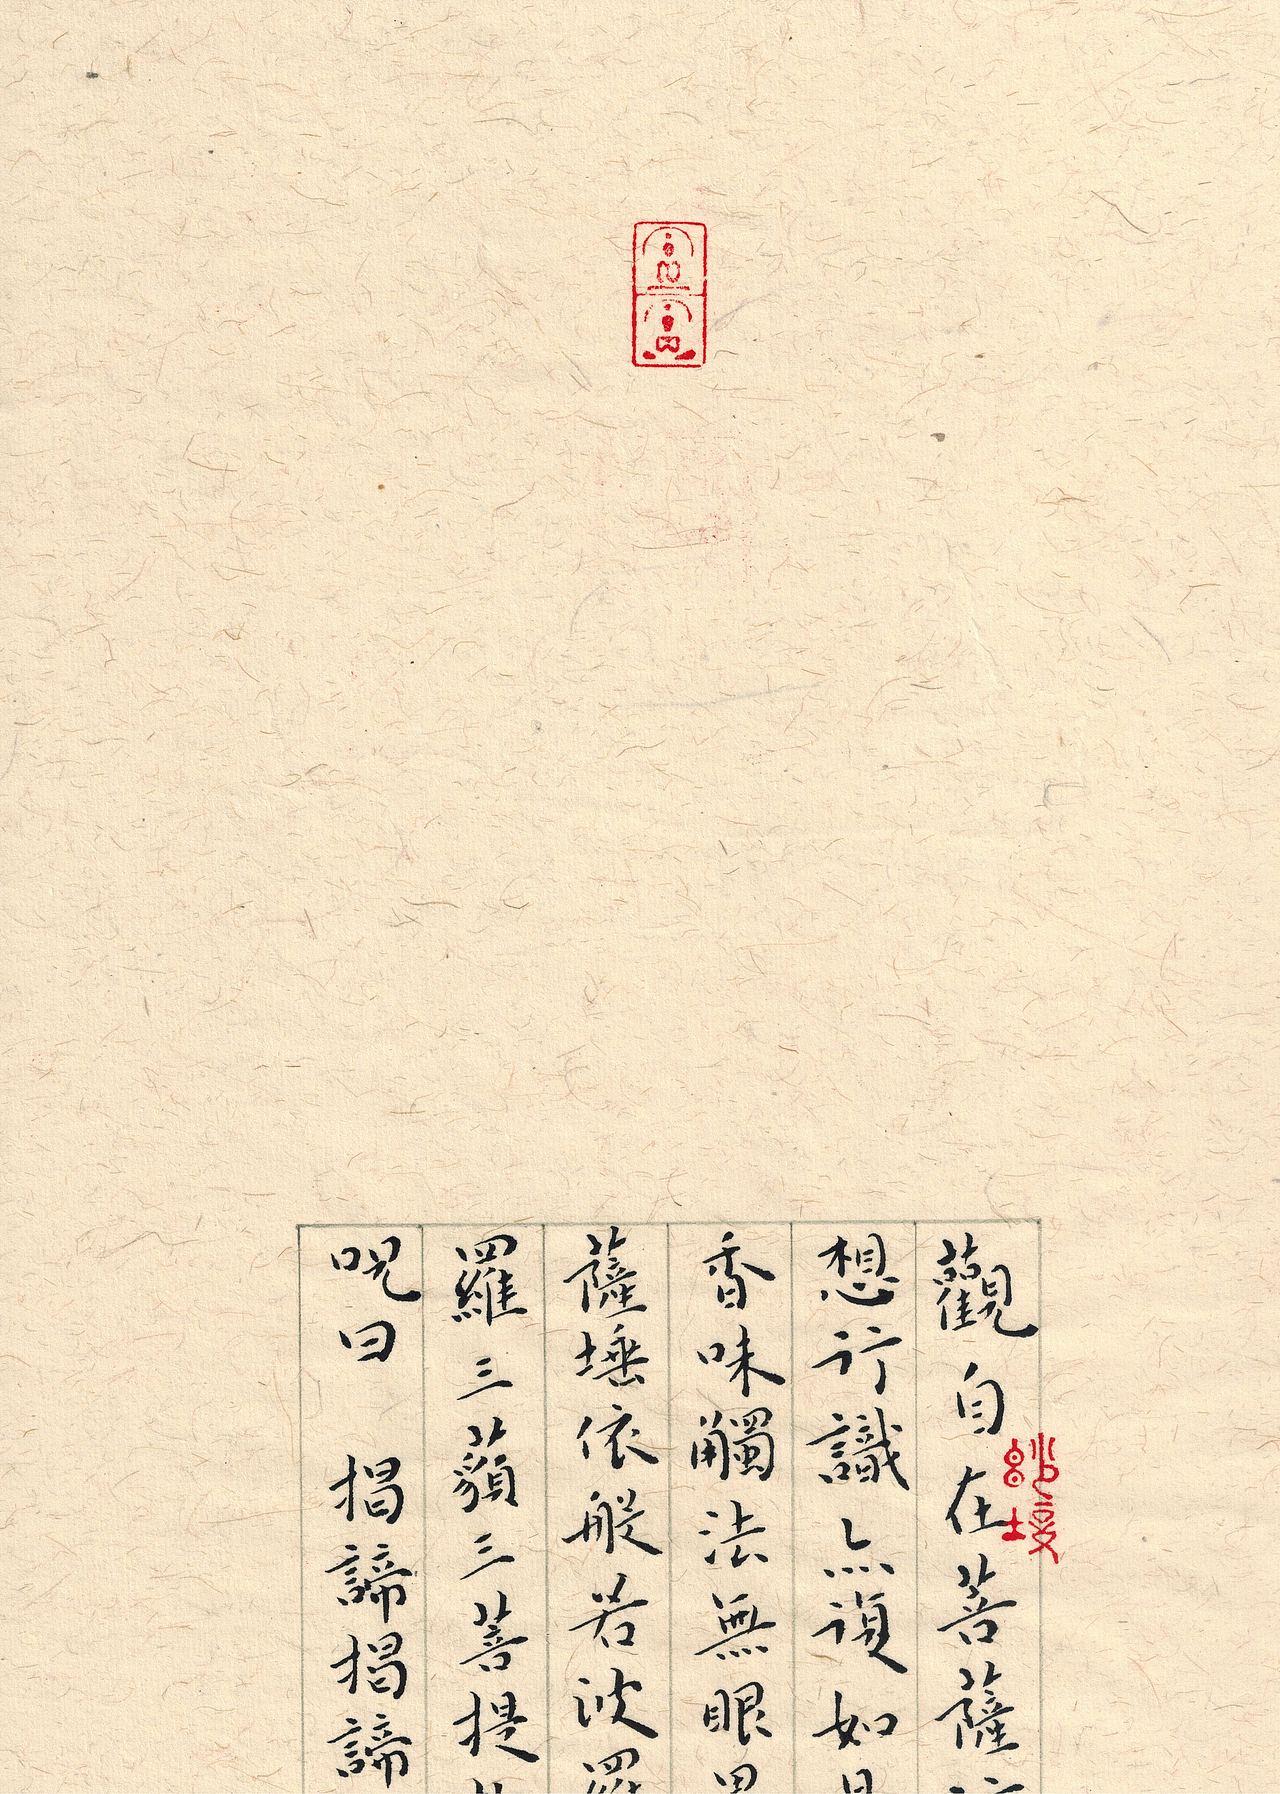 觀自在菩薩
想行識亦復如是
香味觸法無眼界
薩埵依般若波羅
羅三藐三菩提
呪曰 揭諦揭諦